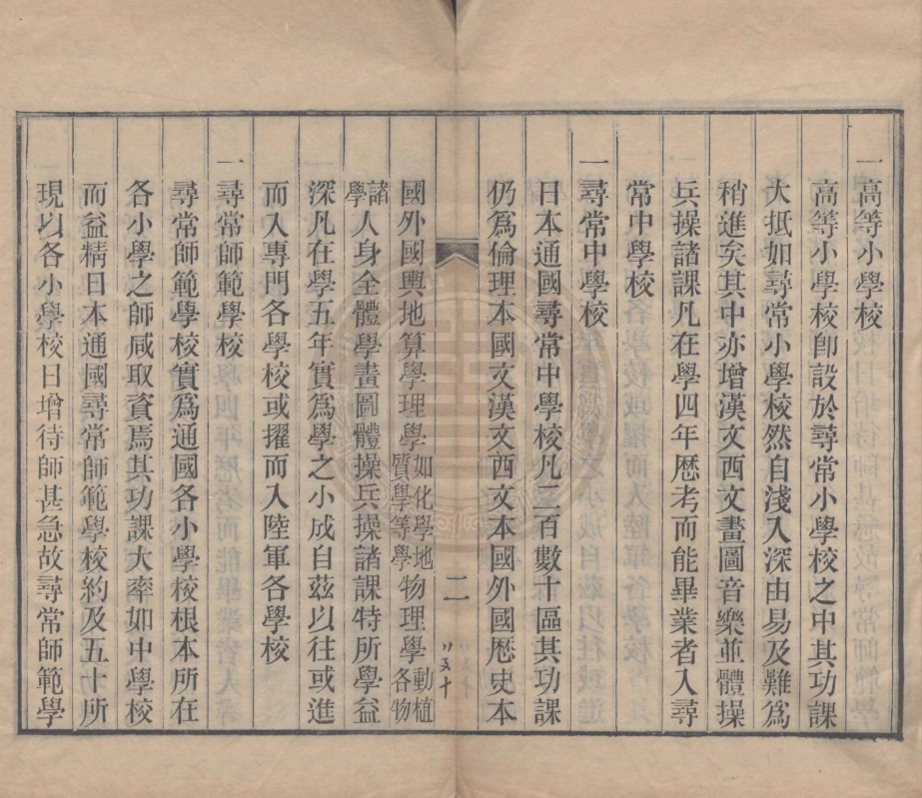 一高等小學校
高等小學校卽設於尋常小學校之中其功課
大抵如尋常小學校然自淺入深由易及難爲
稍進矣其中亦增漢文西文畫圖音樂並體操
兵操諸課凡在學四年歷考而能畢業者入尋
常中學校
一尋常中學校
日本通國尋常中學校凡二百數十區其功課
仍爲倫理本國文漢文西文本國外國歷史本
二
〢〥十
國外國輿地算學理學如化學地質學等學物理學動植各物
諸學人身全體學畫圖體操兵操諸課特所學益
深凡在學五年實爲學之小成自茲以往或進
而入專門各學校或擢而入陸軍各學校
一尋常師範學校
尋常師範學校實爲通國各小學校根本所在
各小學之師咸取資焉其功課大率如中學校
而益精日本通國尋常師範學校約及五十所
現以各小學校日增待師甚急故尋常師範學